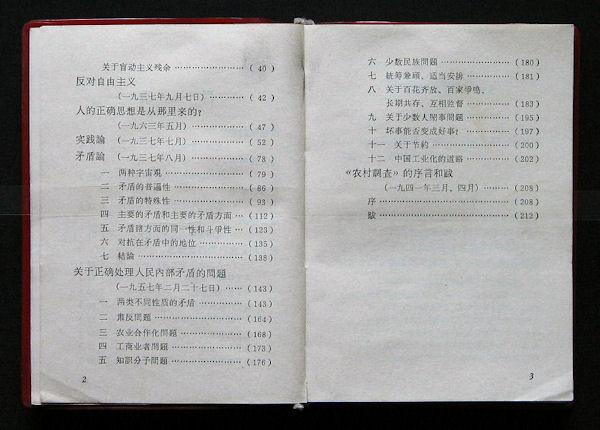 关于盲动主义残余 …………………… ( 40 )
反对自由主义
(一九三七年九月七日) ………… ( 42 )
人的正确思想是从那里来的?
(一九六三年五月) ……………… ( 47 )
实践論 (一九三七年七月) ……………… ( 52 )
矛盾論 (一九三七年八月) ……………… ( 78 )
一 两种宇宙观 ……………………… ( 79 )
二 矛盾的普遍性 …………………… ( 86 )
三 矛盾的特殊性 …………………… ( 93 )
四 主要的矛盾和主要的矛盾方面 … (112)
五 矛盾諸方面的同一性和斗爭性 … (123)
六 对抗在矛盾中的地位 …………… (135)
七 結論 ……………………………… (138)
关于正确处理人民內部矛盾的問題
(一九五七年二月二十七日) …… (143)
一 两类不同性质的矛盾 ………… (143)
二 肃反問題 ……………………… (164)
三 农业合作化問題 ……………… (168)
四 工商业者問題 ………………… (173)
五 知識分子問題 ………………… (176)
2
六 少数民族問題 ………………… (180)
七 統筹兼顾、适当安排 ………… (181)
八 关于百花齐放、百家爭鳴、
长期共存、互相监督 ………… (183)
九 关于少数人鬧事問題 ………… (195)
十 坏事能否变成好事? ………… (197)
十一 关于节約 …………………… (200)
十二 中国工业化的道路 ………… (202)
《农村調査》的序言和跋
(一九四一年三月、四月) ……… (208)
序 ………………………………… (208)
跋 ………………………………… (212)
3